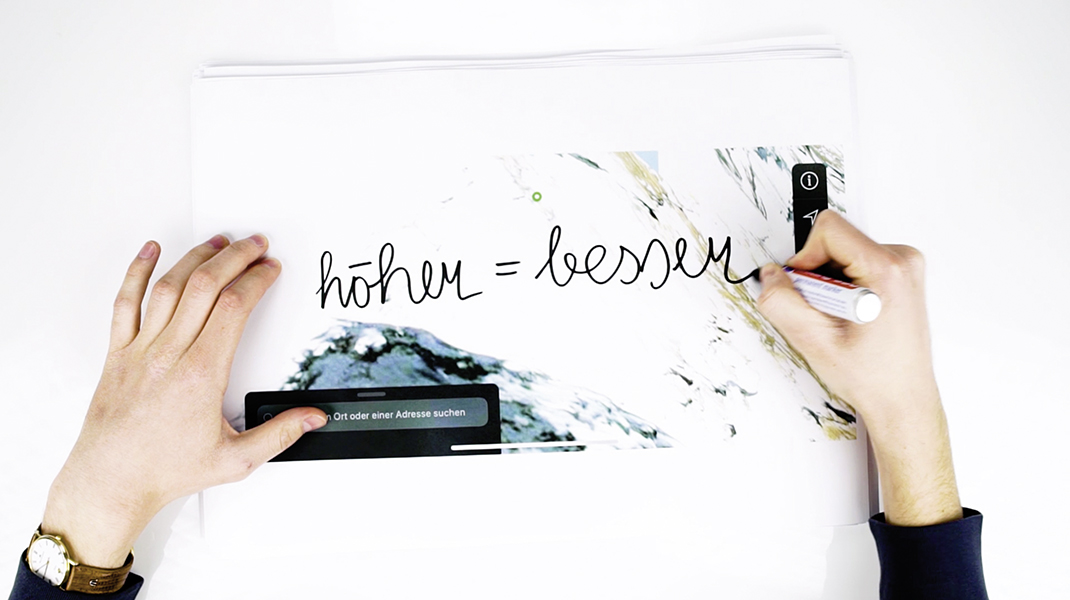 höher = besser
Ort oder einer Adresse suchen